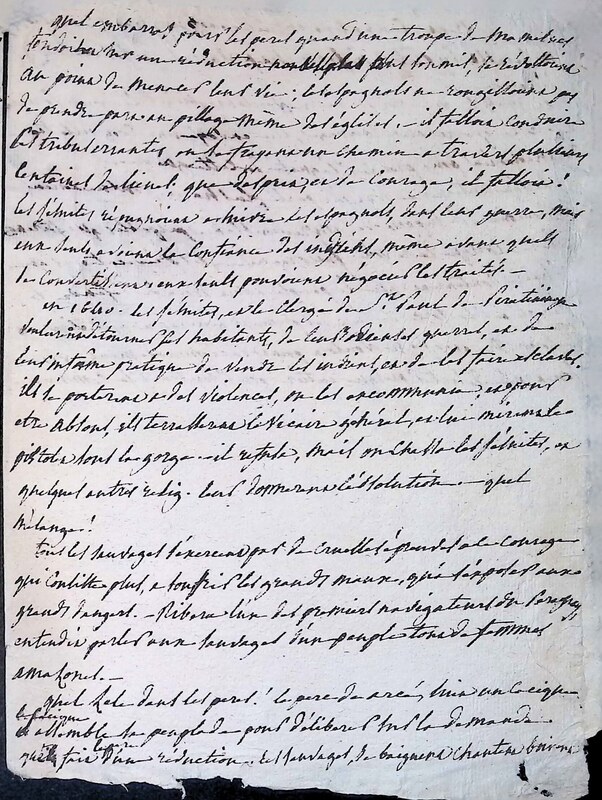 quel embarras pour les peres quand une troupe de mamelucs
fondoit sur une réduction se révoltoient
au point de menacer leur vie; les espagnols ne rougissoient pas
de prendre part au pillage même des églises. - il falloit conduire
les tribus errantes, ou se frayant un chemin a travers plusieurs
centaines de lieues; que d'esprit, et de courage, il falloit!
les jésuites répugnoient a suivre les espagnols, dans leur guerre, mais
eux seuls avoient la confiance des indiens, même avant qu'ils
se convertissent, eux seuls pouvoient negocier les traités. -
en 1640. les jésuites, et le clergé de St. Paul de Piratininga
voulurent détourner ses habitants, de leurs odieuses guerres, et de
leur infâme pratique de vendre les indiens, et de les faire esclaves.
ils se porterent a des violences, on les excommunia, et pour
etre absous, ils terrasserent le vicaire général, et lui mirent le
pistolet sous la gorge - il refusa, mais on chassa les jésuites, et
quelques autres relig. leur donnerent l'absolution. - quel
mélange!
tous les sauvages s'exercent par de cruelles épreuves a le courage
qui consiste plus, a souffrir les grands maux, qu'a s'exposer aux
grands dangers. - Ribera l'un des premiers navigateurs du Paraguay
entendit parler aux sauvages d'un peuple tout de femmes
amazones. -
quel zele dans les peres! le pere de arcé, lui un cacique
assemble sa peuplade pour délibérer sur la demande
faire d'une réduction. les sauvages, se baignent chantent boivent